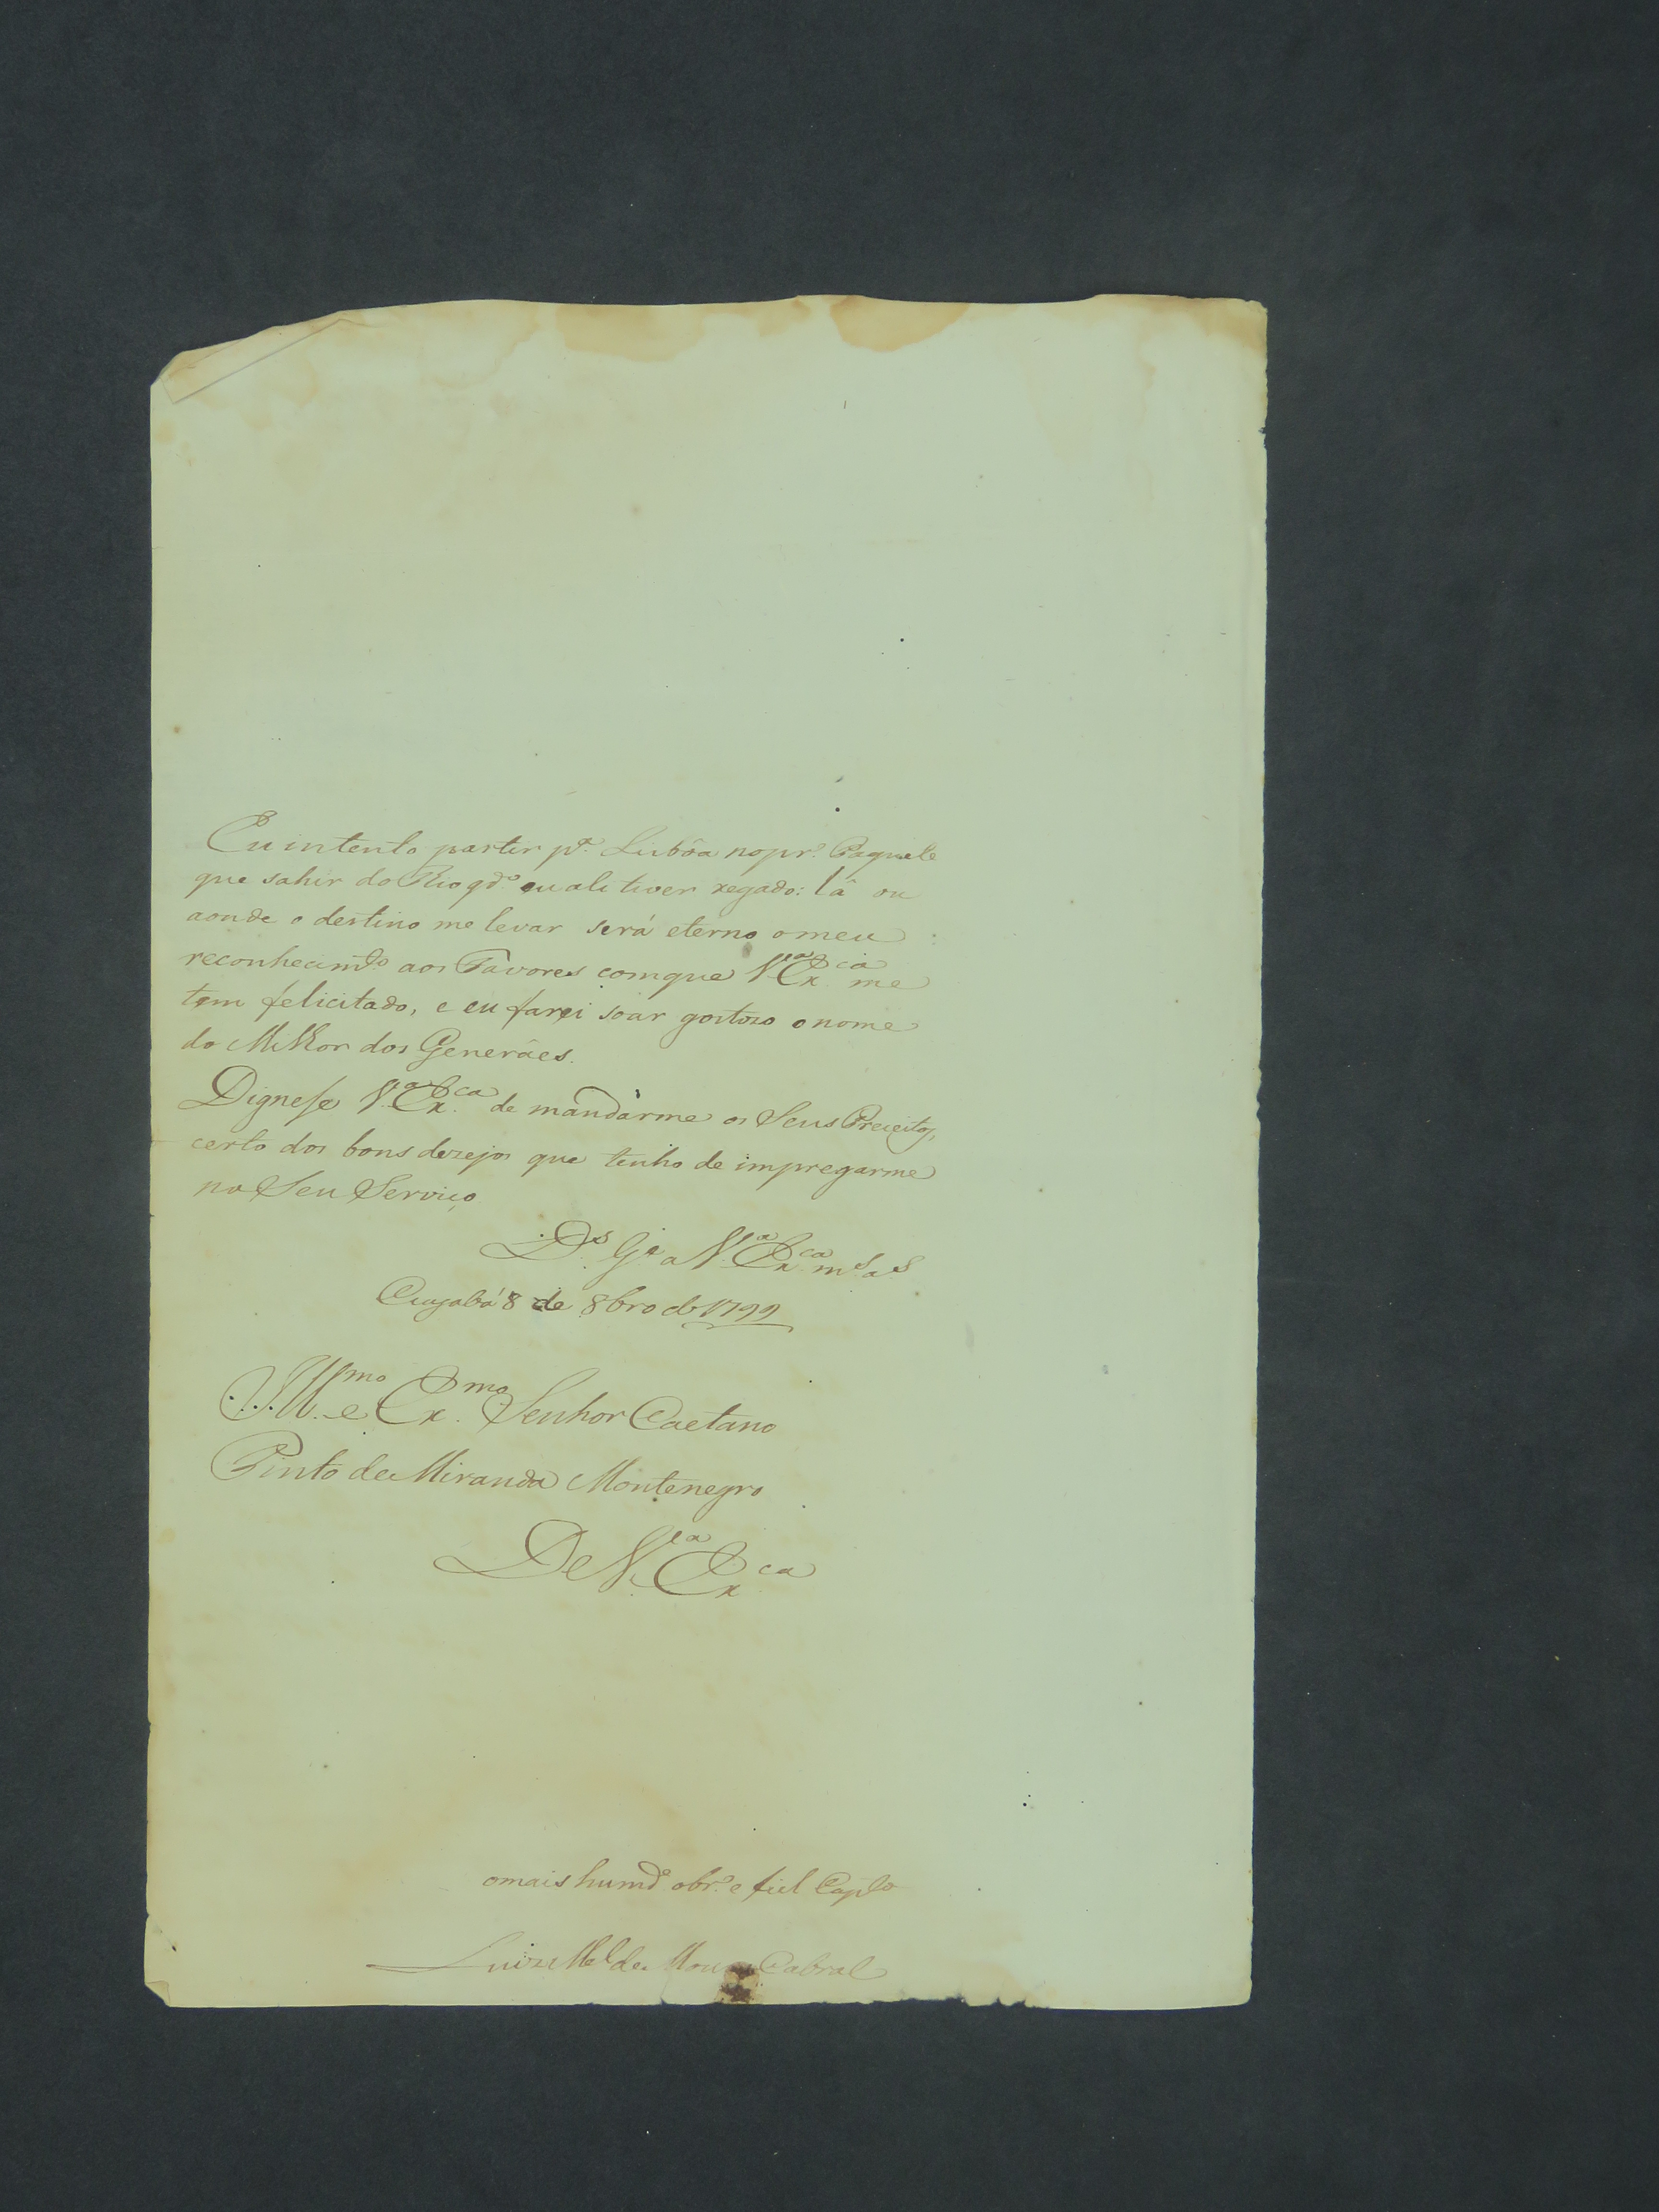 Eu intento partir p.ª Lisbôa no pr.º Paquete
que sahir do Rio qd.º eu ali tiver xegado: lâ ou
aonde o destino me levar será eterno o meu
reconhecim.to aos Favores com que V.ª Ex.cia me
tem felicitado, e eu farei soar gostozo o nome
do Milhor dos Generáes.
Dignese V.ª Ex.ca de mandárme os Seus Preceitos,
certo dos bons dezejos que tenho de impregarme
no Seu Serviço
D.s G.e a V.ª Ex.ca m.s a.s
Cuyabá 8 de 8bro de 1799
Ill.mo e Ex.mo Senhor Caetano
Pinto de Miranda Montenegro
De V.ª Ex.ca
o mais humd.e obr.º e fiel Cap.to
Luiz M.el de Moura Cabral